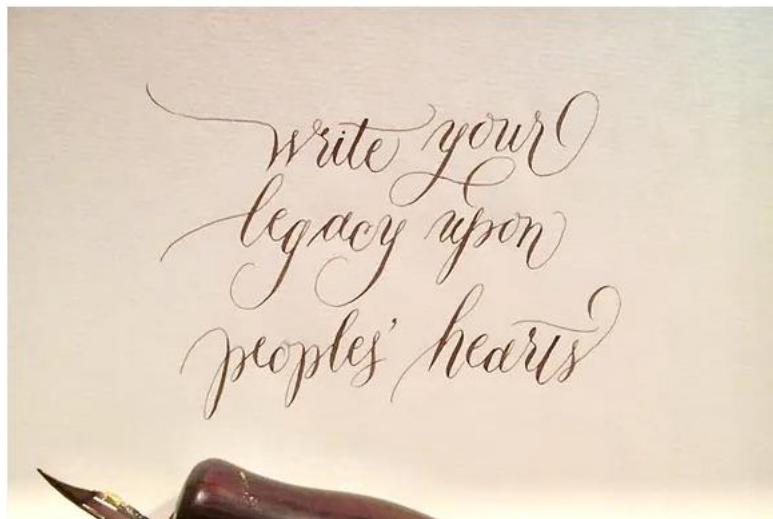 write your
legacy upon
peoples' hearts